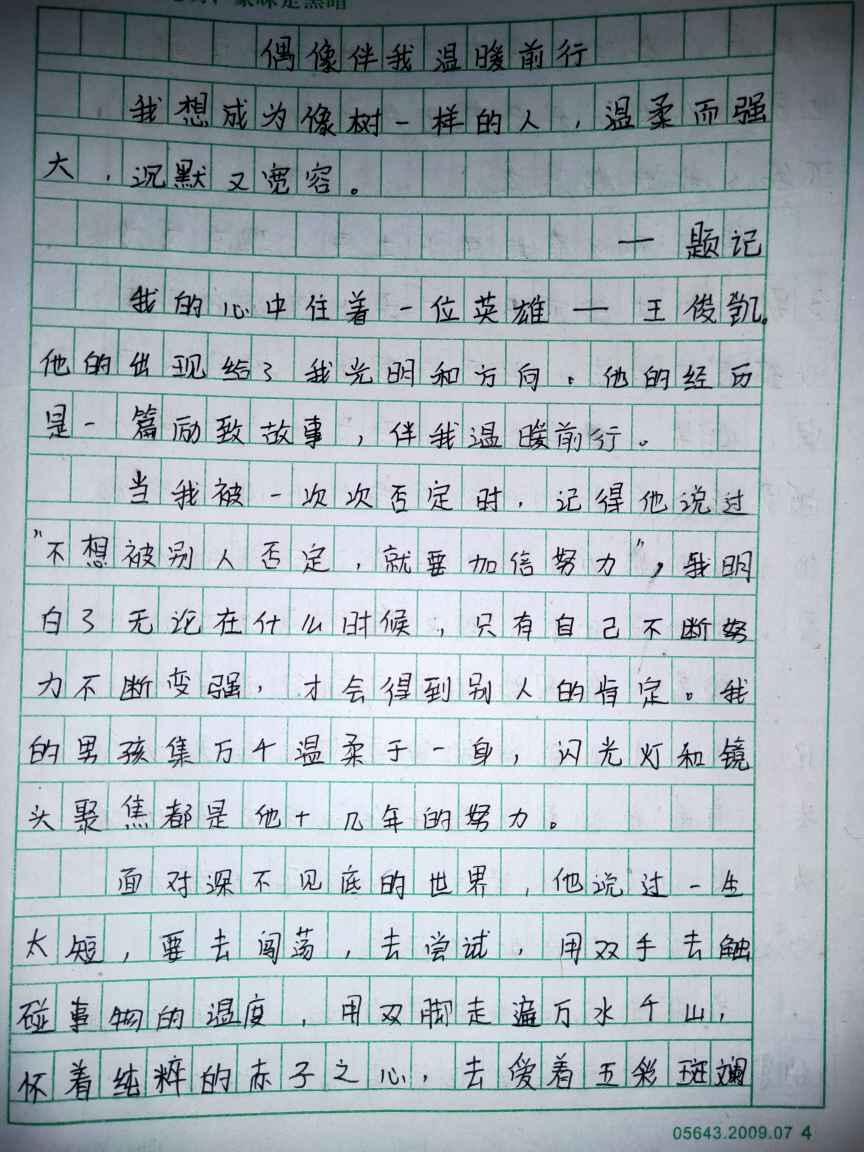 偶像伴我温暖前行
我想成为像树一样的人，温柔而强
大，沉默又宽容。
— 题记
我的心中住着一位英雄 — 王俊凯。
他的出现给了我光明和方向。他的经历
是一篇励致故事，伴我温暖前行。
当我被一次次否定时，记得他说过
“不想被别人否定，就要加倍努力”，我明
白了无论在什么时候，只有自己不断努
力不断变强，才会得到别人的肯定。我
的男孩集万千温柔于一身，闪光灯和镜
头聚焦都是他十几年的努力。
面对深不见底的世界，他说过一生
太短，要去闯荡，去尝试，用双手去触
碰事物的温度，用双脚走遍万水千山，
怀着纯粹的赤子之心，去爱着五彩斑斓
05643.2009.07 4